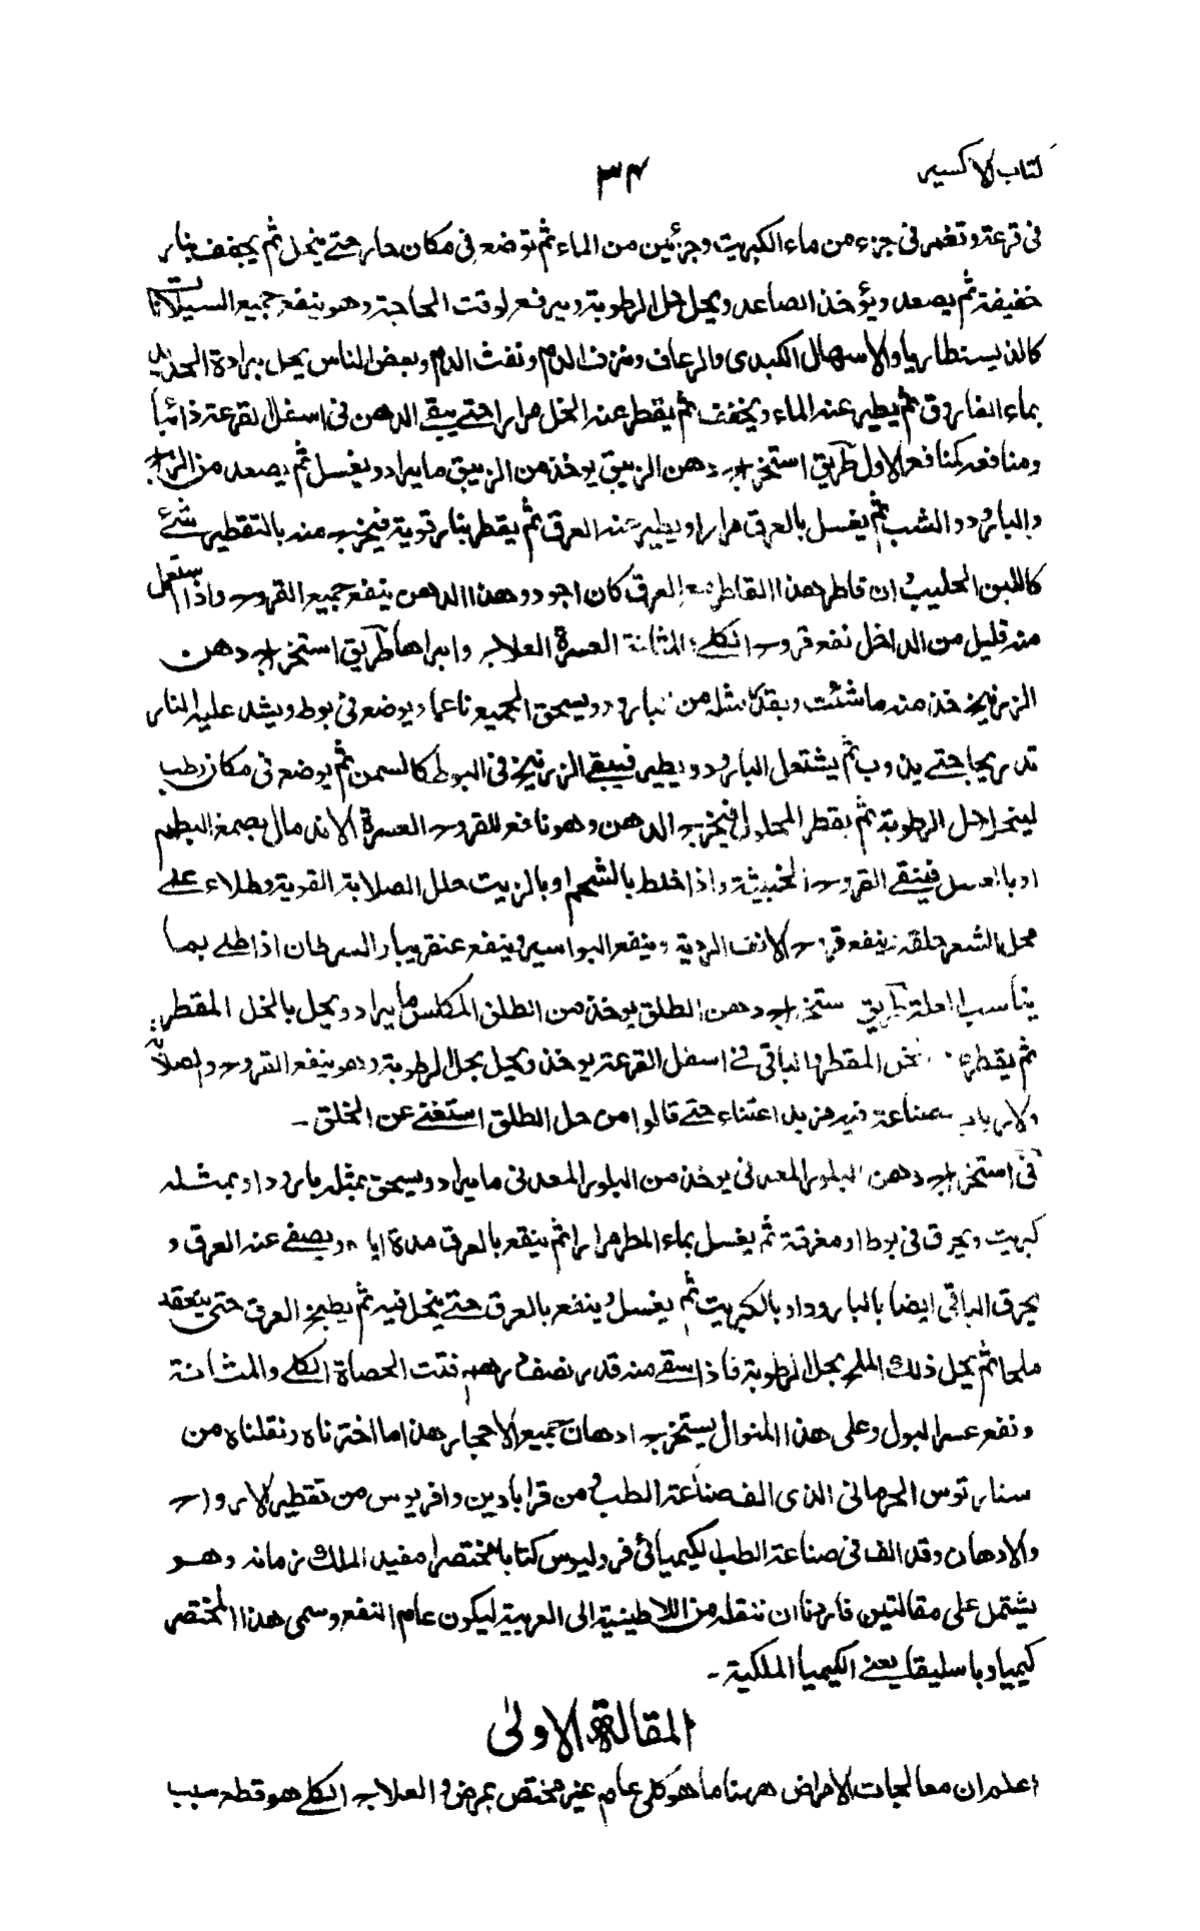 كتاب الاكسير ٣٤
فى قرعة وتغمر فى جزء من ماء الكبريت وجزئين من الماء ثم توضع فى مكان حار حتے ينحل ثم يجفف بنار
خفيفة ثم يصعد ويؤخذ الصاعد ويحل بحل الرطوبة ويرفع لوقت الحاجة وهو ينفع جميع السيلانات
كالذيسنطاريا والاسهال الكبدى والرعاف ونزف الدم ونفث الدم وبعض الناس يحل برادة الحديد
بماء الفاروق ثم يطير عنه الماء ويجفف ثم يقطر عنه الخل مرارا حتے يبقے الدهن فى اسفل القرعة ذائبا
ومنافعه كمنافع الاول طريق استخراج دهن الزيبق يوخذ من الزيبق ما يراد ويغسل ثم يصعد من الزاج
والبارود والشب ثم يغسل بالعرق مرارا ويطير عنه العرق ثم يقطر بنار قوية فيخرج منه بالتقطير شئ
كاللبن الحليب وان قاطر هذا القاطر مع العرق كان اجود وهذا الدهن ينفع جميع القروح واذا استعمل
منه قليل من الداخل نفع قروح الكلے والمثانة العسرة العلاج وابراها طريق استخراج دهن
الزرنيخ خذ منه ما شئت وبقدر مثله من البارود ويسحق الجميع ناعما ويوضع فى بوط ويشد عليه النار
تدريجا حتے يذوب ثم يشتعل البارود ويطير فيبقے الزرنيخ فى البوط كالسمن ثم يوضع فى مكان رطب
لينحل بحل الرطوبة ثم يقطر المحلول فيخرج الدهن وهو نافع للقروح العسرة الاندمال بصمغ البطم
او بالعسل فينقے القروح الخبيثة واذا خلط بالشحم او بالزيت حلل الصلابة القوية وطلاء علے
محل الشعر حلقه وينفع قروح الانف الردية وينفع البواسير وينفع عنقريبا والسرطان اذا طلے بما
يناسب العلة طريق استخراج دهن الطلق يوخذ من الطلق المكلس ما يراد ويحل بالخل المقطر
ثم يقطر الخل المقطر والباقى فے اسفل القرعة يوخذ ويحل بحل الرطوبة وهو ينفع القروح والصلابة
ولارباب الصناعة فيه مزيد اعتناء حتے قالوا من حل الطلق استغنے عن الخلق ۔
فى استخراج دهن البلور المعدنى يوخذ من البلور المعدنى ما يراد ويسحق بمثله بارودا وبمثله
كبريت ويحرق فى بوط او مغرفة ثم يغسل بماء المطر مرارا ثم ينقع بالعرق مدة ايام ويصفے عنه العرق و
يحرق الباقى ايضا بالبارود او بالكبريت ثم يغسل وينقع بالعرق حتے ينحل فيه ثم يطبخ العرق حتى ينعقد
ملحا ثم يحل ذلك الملح بحل الرطوبة فاذا سقے منه قدر نصف درهم فتت الحصاة الكلے والمثانة
ونفع عسر البول وعلى هذا المنوال يستخرج ادهان جميع الاحجار هذا ما اخترناه ونقلناه من
سنارتوس الجرمانى الذى الف صناعة الطب ومن قرابادين وافريوس من تقطير الارواح
والادهان وقد الف فى صناعة الطب الكيميائى قرولیوس كتابا مختصرا مفيدا لملك زمانه وهو
يشتمل على مقالتين فاردنا ان ننقله من اللاطينية الى العربية ليكون عام النفع وسمى هذا المختصر
كيميا وباسليقا يعنے الكيميا الملكية ۔
المقالة الاولىٰ
اعلم ان معالجات الامراض ههنا ما هو كلى عام غير مختص بمرض والعلاج الكلے هو قطع سبب